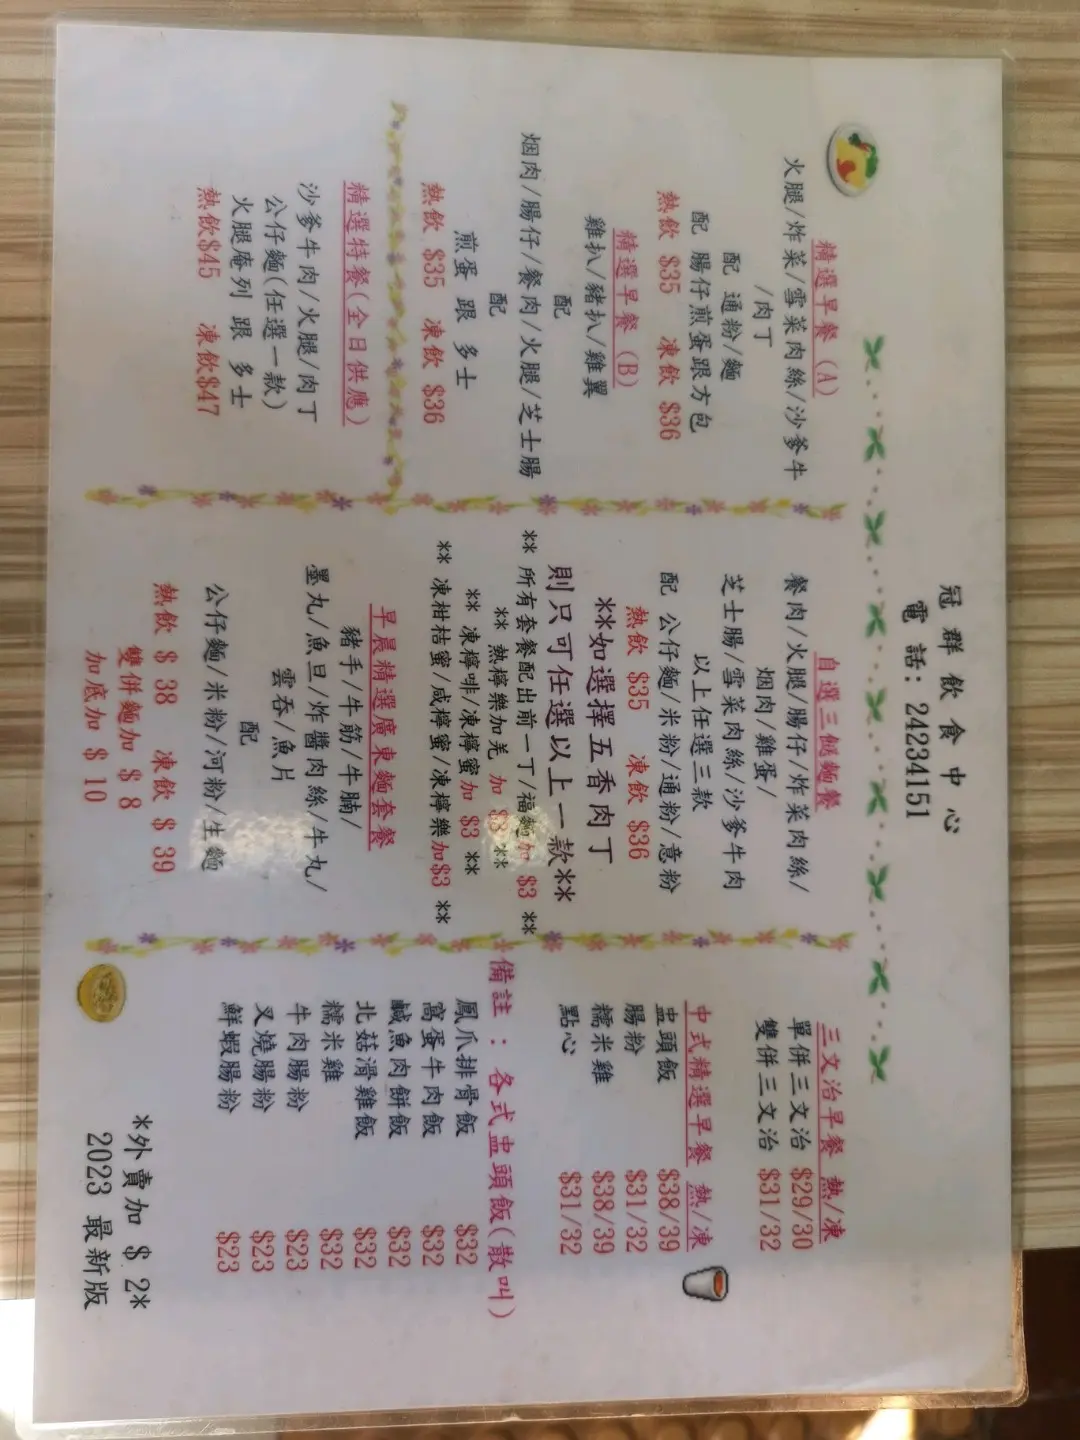 冠群飲食中心
電話: 24234151
精選早餐 (A)
火腿/炸菜/雪菜肉絲/沙爹牛
/肉丁
配 通粉/麵
配 腸仔煎蛋跟方包
熱飲 $35 凍飲 $36
精選早餐 (B)
雞扒/豬扒/雞翼
配
烟肉/腸仔/餐肉/火腿/芝士腸
配
煎蛋 跟 多士
熱飲 $35 凍飲 $36
精選特餐(全日供應)
沙爹牛肉/火腿/肉丁
公仔麵(任選一款)
火腿庵列 跟 多士
熱飲$45 凍飲$47
自選三餸麵餐
餐肉/火腿/腸仔/炸菜肉絲/
烟肉/雞蛋/
芝士腸/雪菜肉絲/沙爹牛肉
以上任選三款
配 公仔麵/米粉/通粉/意粉
熱飲 $35 凍飲 $36
**如選擇五香肉丁
則只可任選以上一款**
** 所有套餐配出前一丁/福麵加 $3 **
** 熱檸樂加羌 加 $3 **
** 凍檸啡/凍檸蜜加 $3 **
** 凍柑桔蜜/咸檸蜜/凍檸樂加$3 **
早晨精選廣東麵套餐
豬手/牛筋/牛腩/
墨丸/魚旦/炸醬肉絲/牛丸/
雲吞/魚片
配
公仔麵/米粉/河粉/生麵
熱飲 $ 38 凍飲 $ 39
雙併麵加 $ 8
加底加 $ 10
三文治早餐 熱/凍
單併三文治 $29/30
雙併三文治 $31/32
中式精選早餐 熱/凍
盅頭飯 $38/39
腸粉 $31/32
糯米雞 $38/39
點心 $31/32
備註 : 各式盅頭飯(散叫)
鳳爪排骨飯 $32
窩蛋牛肉飯 $32
鹹魚肉餅飯 $32
北菇滑雞飯 $32
糯米雞 $32
牛肉腸粉 $23
叉燒腸粉 $23
鮮蝦腸粉 $23
*外賣加 $ 2*
2023 最新版